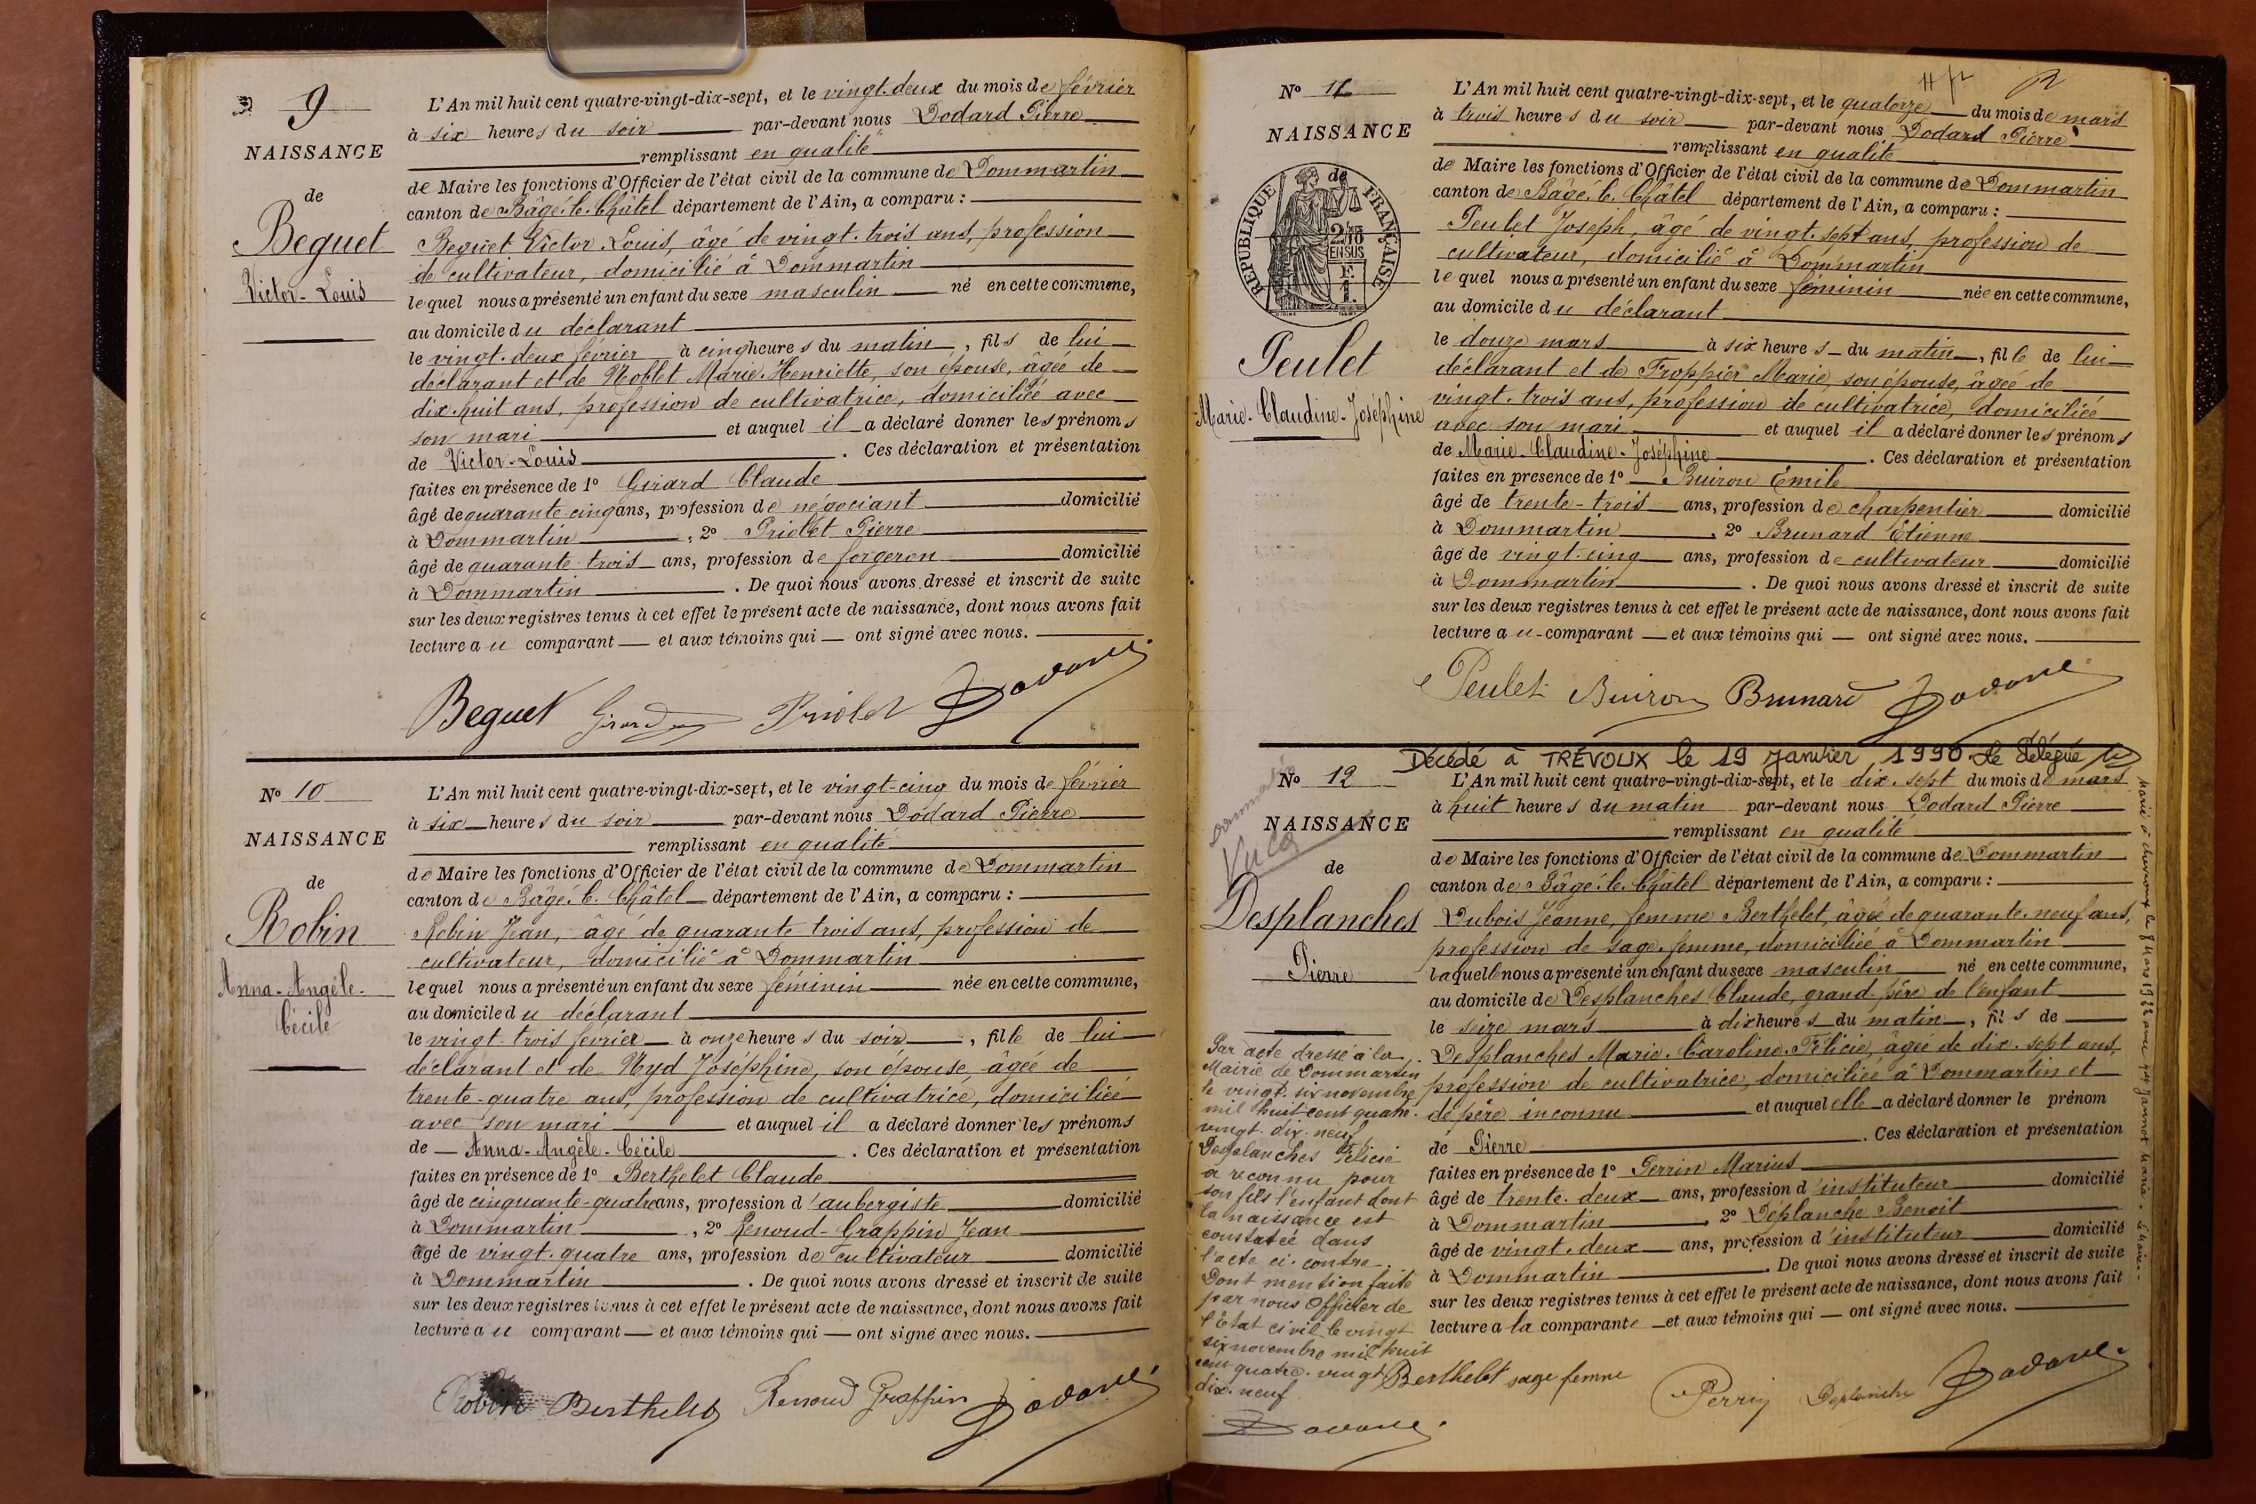 9
NAISSANCE
de
Beguet
Victor-Louis
L'An mil huit cent quatre-vingt-dix-sept, et le vingt-deux du mois de février
à six heures du soir par-devant nous Dodard Pierre
remplissant en qualité
de Maire les fonctions d'Officier de l'état civil de la commune de Dommartin
canton de Bâgé-le-Châtel département de l'Ain, a comparu :
Beguet Victor Louis, âgé de vingt-trois ans, profession
de cultivateur, domicilié à Dommartin
lequel nous a présenté un enfant du sexe masculin né en cette commune,
au domicile du déclarant
le vingt-deux février à cinq heures du matin, fils de lui
déclarant et de Noblet Marie-Henriette, son épouse, âgée de
dix-huit ans, profession de cultivatrice, domiciliée avec
son mari et auquel il a déclaré donner les prénoms
de Victor-Louis. Ces déclaration et présentation
faites en présence de 1º Girard Claude
âgé de quarante-cinq ans, profession de négociant domicilié
à Dommartin, 2º Priolet Pierre
âgé de quarante-trois ans, profession de forgeron domicilié
à Dommartin. De quoi nous avons dressé et inscrit de suite
sur les deux registres tenus à cet effet le présent acte de naissance, dont nous avons fait
lecture au comparant et aux témoins qui ont signé avec nous.
Beguet Girard Priolet Dodard
Nº 10
NAISSANCE
de
Robin
Anna-Angèle-
Cécile
L'An mil huit cent quatre-vingt-dix-sept, et le vingt-cinq du mois de février
à six heures du soir par-devant nous Dodard Pierre
remplissant en qualité
de Maire les fonctions d'Officier de l'état civil de la commune de Dommartin
canton de Bâgé-le-Châtel département de l'Ain, a comparu :
Robin Jean, âgé de quarante trois ans, profession de
cultivateur, domicilié à Dommartin
lequel nous a présenté un enfant du sexe féminin née en cette commune,
au domicile du déclarant
le vingt-trois février à onze heures du soir, fille de lui
déclarant et de Nyd Joséphine, son épouse, âgée de
trente-quatre ans, profession de cultivatrice, domiciliée
avec son mari et auquel il a déclaré donner les prénoms
de Anna-Angèle-Cécile. Ces déclaration et présentation
faites en présence de 1º Berthelet Claude
âgé de cinquante-quatre ans, profession d'aubergiste domicilié
à Dommartin, 2º Renoud-Grappin Jean
âgé de vingt-quatre ans, profession de cultivateur domicilié
à Dommartin. De quoi nous avons dressé et inscrit de suite
sur les deux registres tenus à cet effet le présent acte de naissance, dont nous avons fait
lecture au comparant et aux témoins qui ont signé avec nous.
Robin Berthelet Renoud Grappin Dodard
Nº 11
NAISSANCE
de
REPUBLIQUE FRANÇAISE
Peulet
Marie-Claudine-Joséphine
L'An mil huit cent quatre-vingt-dix-sept, et le quatorze du mois de mars
à trois heures du soir par-devant nous Dodard Pierre
remplissant en qualité
de Maire les fonctions d'Officier de l'état civil de la commune de Dommartin
canton de Bâgé-le-Châtel département de l'Ain, a comparu :
Peulet Joseph, âgé de vingt-sept ans, profession de
cultivateur, domicilié à Dommartin
lequel nous a présenté un enfant du sexe féminin née en cette commune,
au domicile du déclarant
le douze mars à six heures du matin, fille de lui
déclarant et de Froppier Marie, son épouse, âgée de
vingt-trois ans, profession de cultivatrice, domiciliée
avec son mari et auquel il a déclaré donner les prénoms
de Marie-Claudine-Joséphine. Ces déclaration et présentation
faites en presence de 1º Buiron Emile
âgé de trente-trois ans, profession de charpentier domicilié
à Dommartin, 2º Brunard Etienne
âgé de vingt-cinq ans, profession de cultivateur domicilié
à Dommartin. De quoi nous avons dressé et inscrit de suite
sur les deux registres tenus à cet effet le présent acte de naissance, dont nous avons fait
lecture au comparant et aux témoins qui ont signé avec nous.
Peulet Buiron Brunard Dodard
Décédé à TRÉVOUX le 19 Janvier 1990 le Délégué
Nº 12
NAISSANCE
de
Desplanches
Pierre
L'An mil huit cent quatre-vingt-dix-sept, et le dix-sept du mois de mars
à huit heures du matin par-devant nous Dodard Pierre
remplissant en qualité
de Maire les fonctions d'Officier de l'état civil de la commune de Dommartin
canton de Bâgé-le-Châtel département de l'Ain, a comparu :
Dubois Jeanne, femme Berthelet, âgée de quarante-neuf ans,
profession de sage-femme, domiciliée à Dommartin
laquelle nous a présenté un enfant du sexe masculin né en cette commune,
au domicile de Desplanches Claude, grand-père de l'enfant
le seize mars à dix heures du matin, fils de
Desplanches Marie-Caroline-Félicie, âgée de dix-sept ans,
profession de cultivatrice, domiciliée à Dommartin et
de père inconnu et auquel elle a déclaré donner le prénom
de Pierre. Ces déclaration et présentation
faites en présence de 1º Perrin Marius
âgé de trente-deux ans, profession d'instituteur domicilié
à Dommartin, 2º Déplanche Benoit
âgé de vingt-deux ans, profession d'instituteur domicilié
à Dommartin. De quoi nous avons dressé et inscrit de suite
sur les deux registres tenus à cet effet le présent acte de naissance, dont nous avons fait
lecture a la comparante et aux témoins qui ont signé avec nous.
Berthelet sage femme Perrin Deplanche Dodard
Par acte dressé à la
Mairie de Dommartin
le vingt-six novembre
mil huit cent quatre-
vingt-dix-neuf,
Desplanches Félicie
a reconnu pour
son fils l'enfant dont
la naissance est
constatée dans
l'acte ci-contre.
Dont mention faite
par nous Officier de
l'Etat civil le vingt
six novembre mil huit
cent quatre-vingt
dix-neuf
Dodard